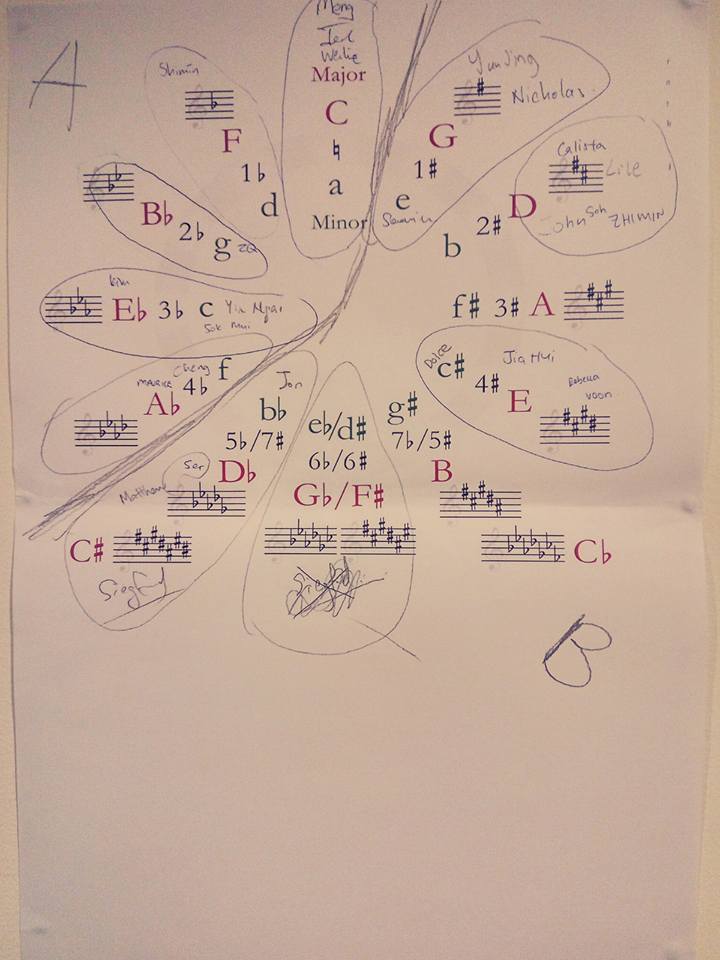 A
Meng
Weilie
Major
C
♮
a
Minor
YunJing
Nicholas
G
1#
e
Calista
D
John Soh ZHIMIN
2#
b
Shimin
F
1♭
d
B♭
2♭
g
ZQ
kim
E♭ 3♭ c Yin Ngai
Sok Mui
f# 3# A
Dolce
c#
Jia Hui
4#
E
Rebecca
voon
MAURICE
Cheng
f
4♭
A♭
Jon
b♭
5♭/7#
D♭
Ser
Matthew
C#
Siegfried
e♭/d#
6♭/6#
G♭/F#
g#
7♭/5#
B
C♭
B